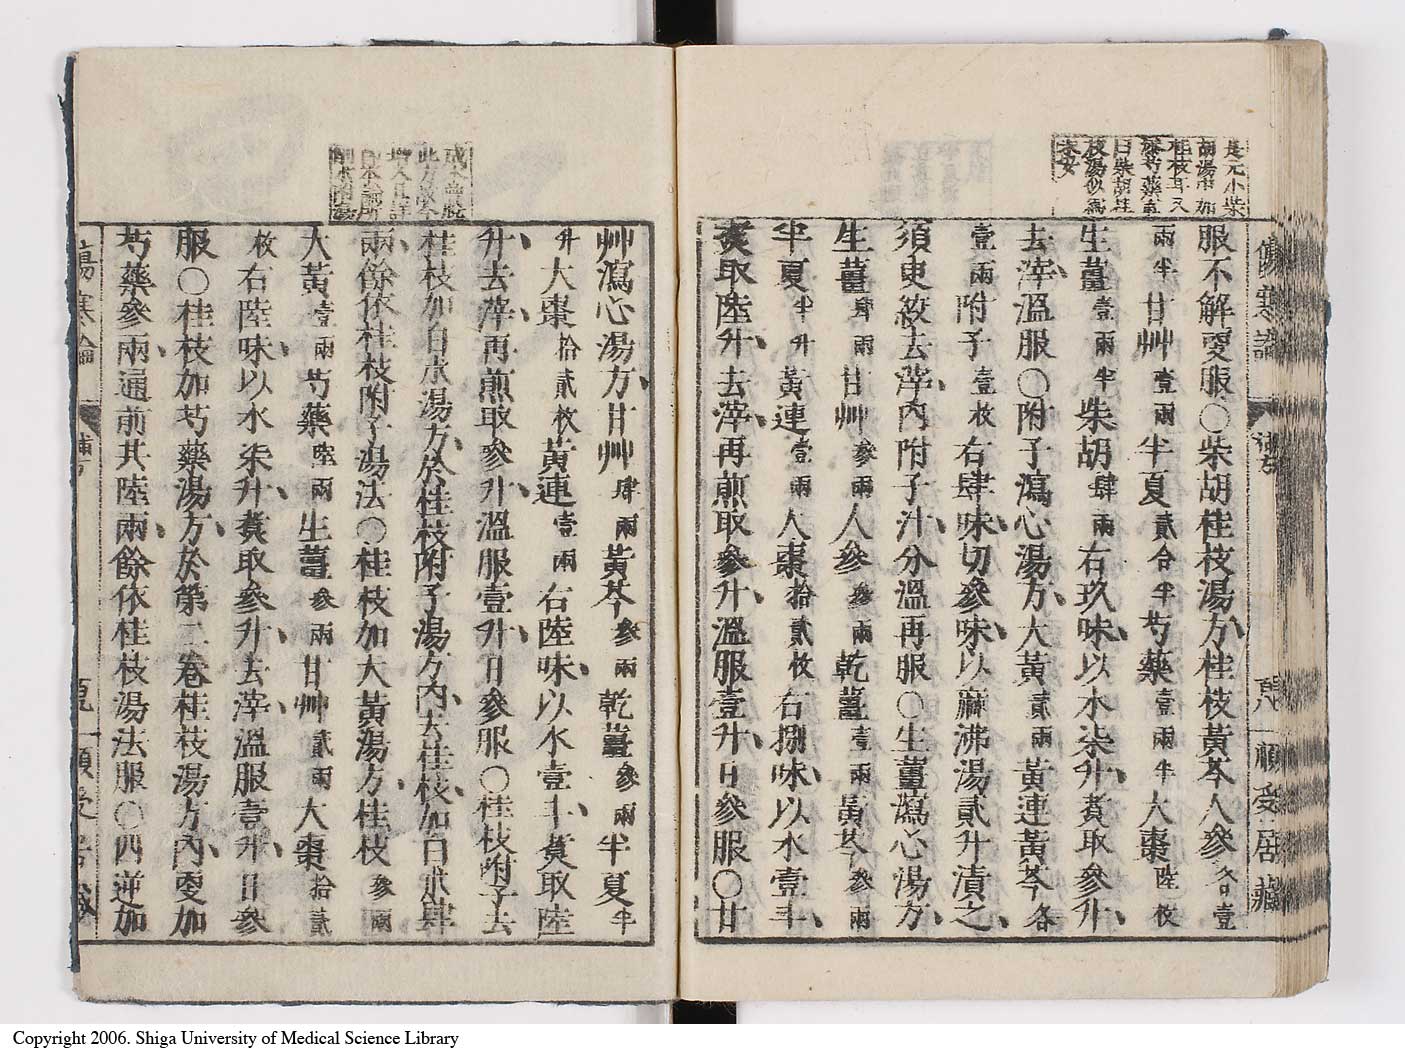 服不解更服〇柴胡桂枝湯方桂枝黃芩人參各壹
兩半甘艸壹兩半夏貳合半芍藥壹兩半大棗陸枚
生薑壹兩半柴胡肆兩右玖味以水柒升煑取參升
去滓溫服〇附子瀉心湯方大黃貳兩黃連黃芩各
壹兩附子壹枚右肆味切參味以麻沸湯貳升漬之
須臾絞去滓內附子汁分溫再服〇生薑瀉心湯方
生薑肆兩甘艸參兩人參參兩乾薑壹兩黃芩參兩
半夏半升黃連壹兩大棗拾貳枚右捌味以水壹斗
煑取陸升去滓再煎取參升溫服壹升日參服〇甘
艸瀉心湯方甘艸肆兩黃芩參兩乾薑參兩半夏半
升大棗拾貳枚黃連壹兩右陸味以水壹斗煑取陸
升去滓再煎取參升溫服壹升日參服〇桂枝附子去
桂枝加白朮湯方於桂枝附子湯方內去桂枝加白朮肆
兩餘依桂枝附子湯法〇桂枝加大黃湯方桂枝參兩
大黃壹兩芍藥陸兩生薑參兩甘艸貳兩大棗拾貳
枚右陸味以水柒升煑取參升去滓溫服壹升日參
服〇桂枝加芍藥湯方於第二卷桂枝湯方內更加
芍藥參兩通前共陸兩餘依桂枝湯法服〇四逆加
傷寒論
Copyright 2006. Shiga University of Medical Science Library